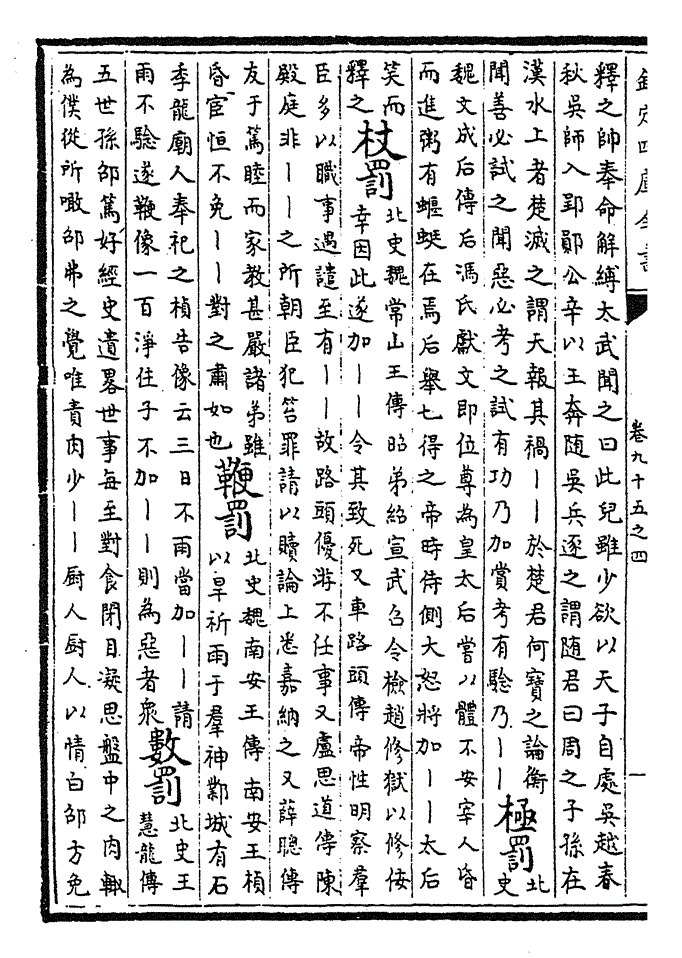 欽定四庫全書
卷九十五之四
一
釋之帥奉命解縛太武聞之曰此兒雖少欲以天子自處吳越春
秋吳師入郢鄖公辛以王奔随吳兵逐之謂随君曰周之子孫在
漢水上者楚滅之謂天報其禍丨丨於楚君何寶之論衡
聞善必試之聞惡必考之試有功乃加賞考有驗乃丨丨
極罰
北
史
魏文成后傳后馮氏獻文即位尊為皇太后嘗以體不安宰人昏
而進粥有蝘蜓在焉后舉匕得之帝時侍側大怒將加丨丨太后
笑而
釋之
杖罰
北史魏常山王傳昭弟紹宣武召令檢趙修獄以修佞
幸因此遂加丨丨令其致死又車路頭傳帝性明察羣
臣多以職事遇譴至有丨丨故路頭優游不任事又盧思道傳陳
殿庭非丨丨之所朝臣犯笞罪請以贖論上悉嘉納之又薛聰傳
友于篤睦而家教甚嚴諸弟雖
昏宦恒不免丨丨對之肅如也
鞭罰
北史魏南安王傳南安王楨
以旱祈雨于羣神鄴城有石
季龍廟人奉祀之楨告像云三日不雨當加丨丨請
雨不驗遂鞭像一百淨住子不加丨丨則為惡者衆
數罰
北史王
慧龍傳
五世孫邵篤好經史遺畧世事每至對食閉目凝思盤中之肉輙
為僕從所噉邵弗之覺唯責肉少丨丨厨人厨人以情白邵方免